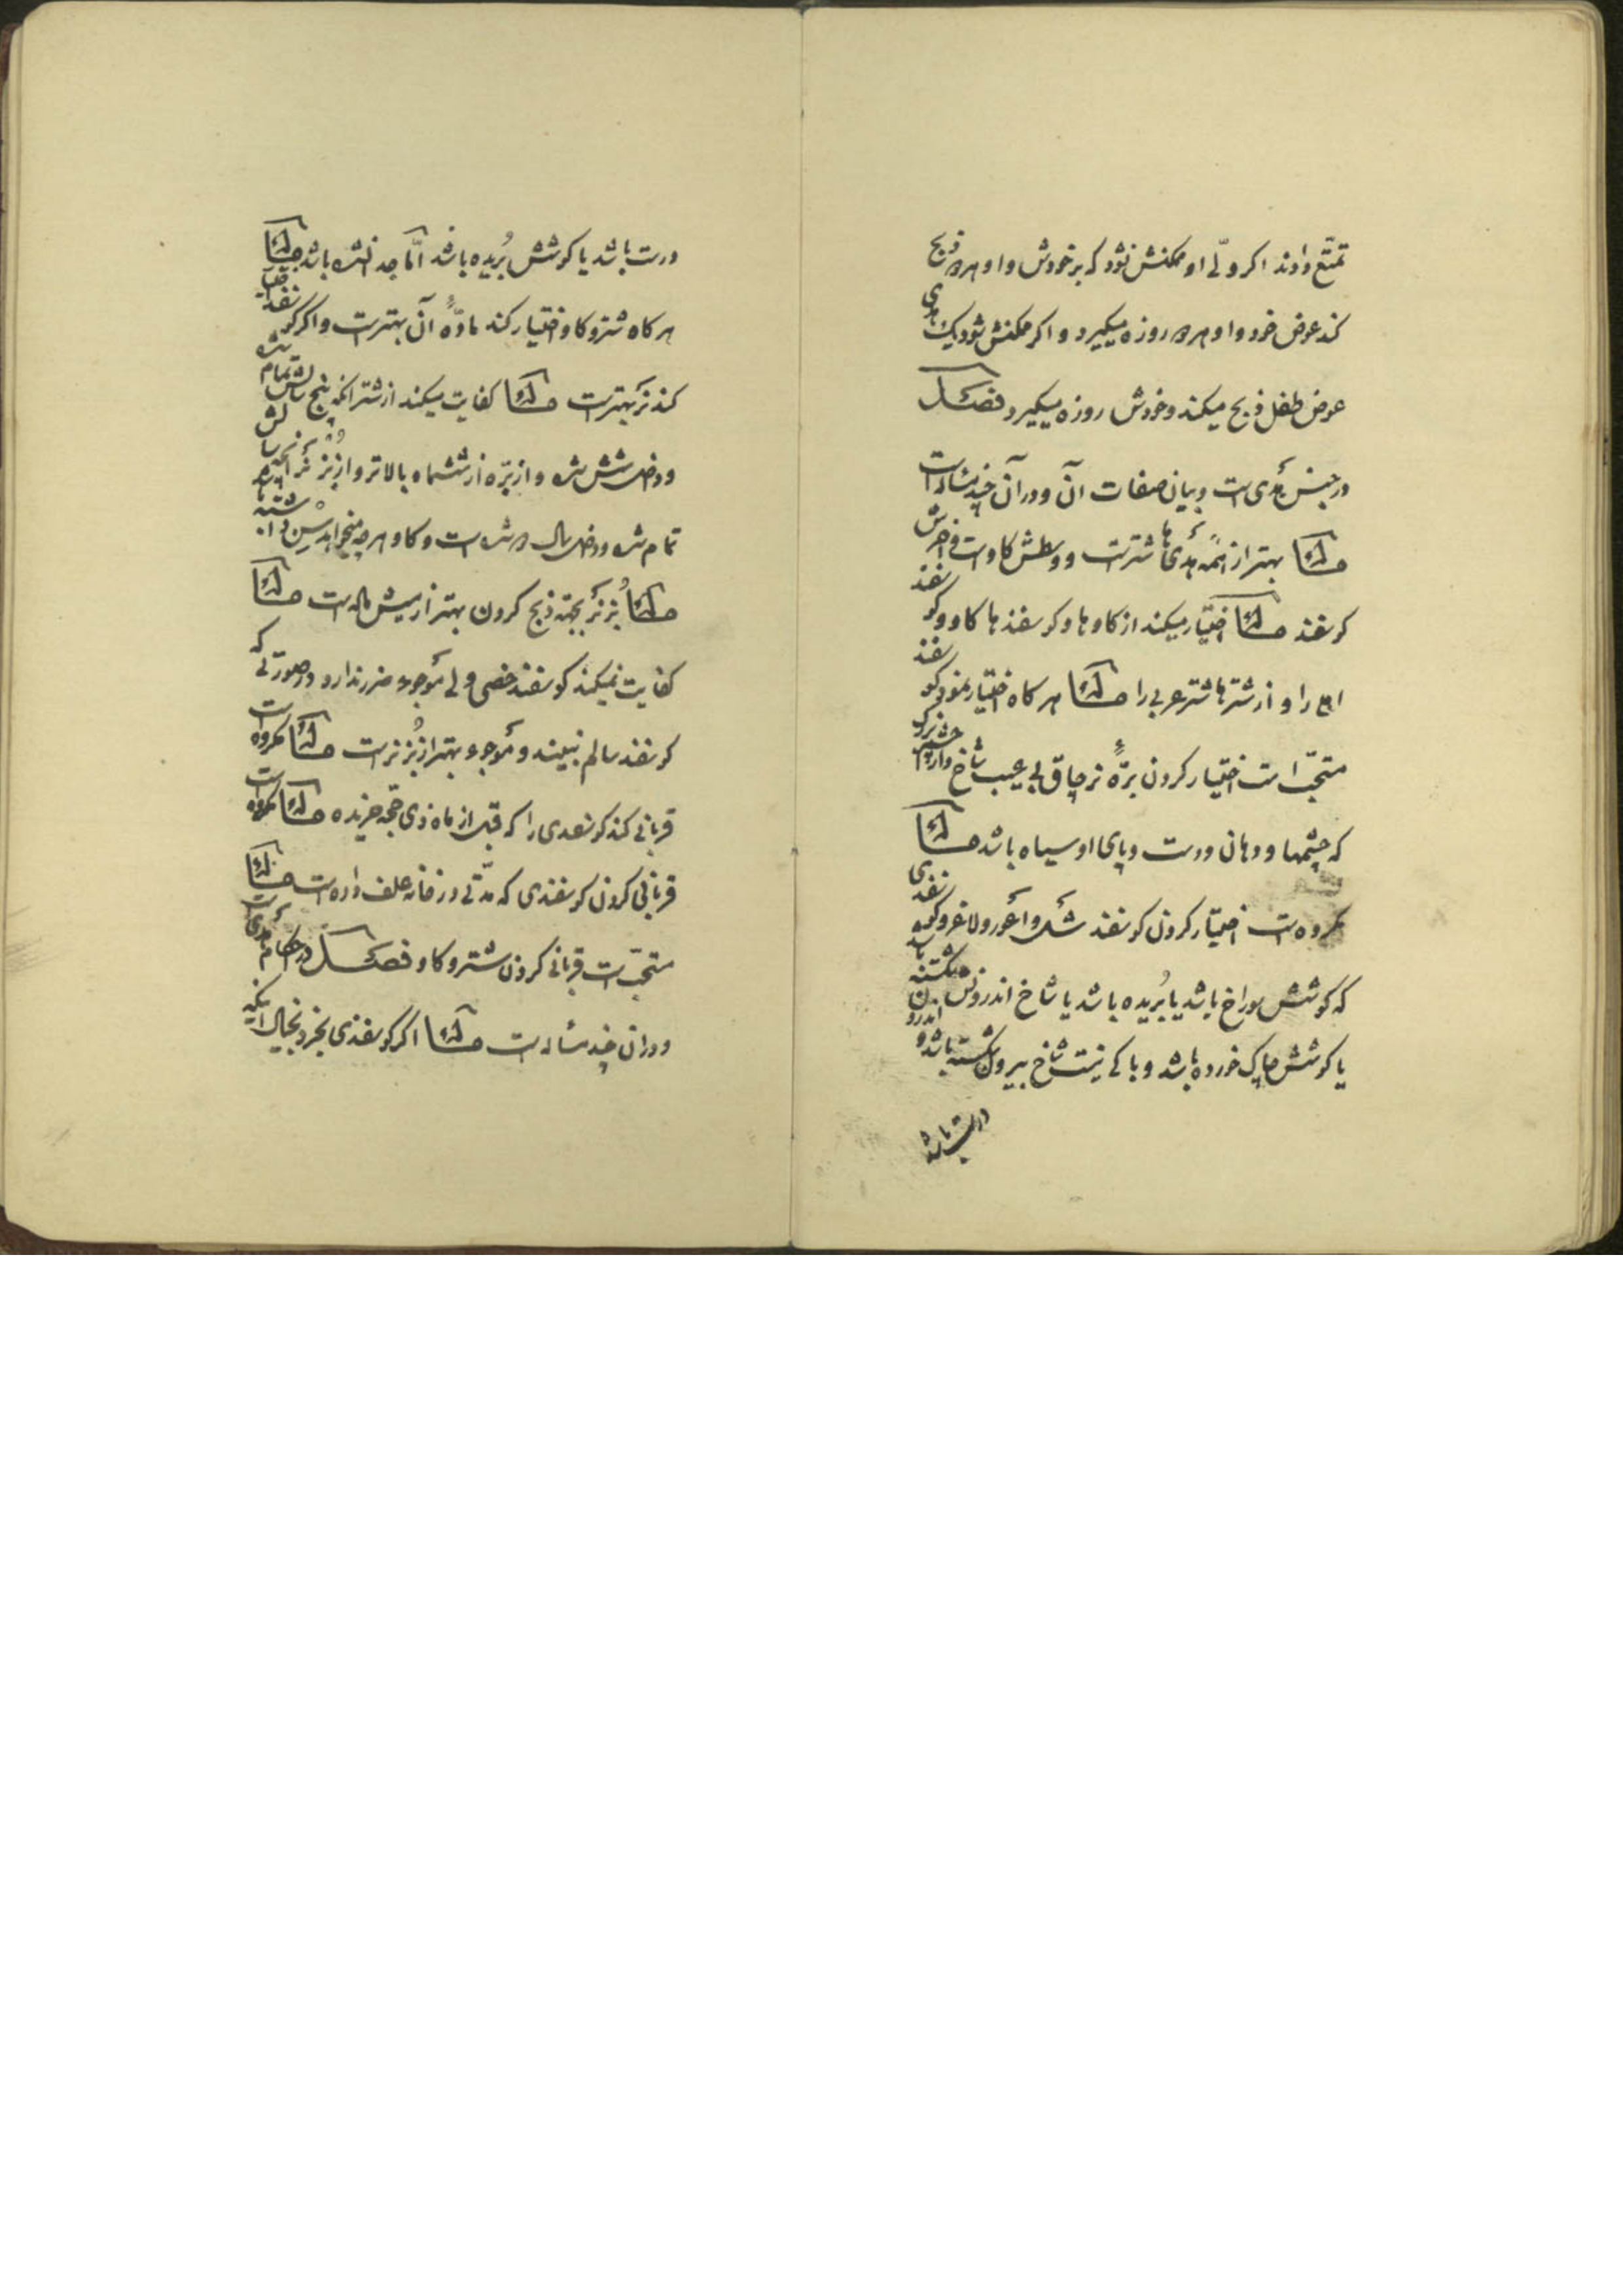 تمتّع دادند اکر ولّی او ممکنش نشود که بر خودش و او هر دو ذبح
کند عوض خود و او هر دو روزه میکیرد و اکر ممکنش شود یک هدی
عوض طفل ذبح میکند و خودش روزه میکیرد فصل
در جنس هدی است و بیان صفات آن و در آن چند مسٔاله است
مسٔاله بهتر از همه هدی‌ها شتر است و وسطش کاو است و آخرش
کوسفند مسٔاله اختیار میکند از کاوها و کوسفندها کاو و کوسفند
را و از شترها شتر عربی را مسٔاله هر کاه اختیار نمود کوسفند
مستحبّ است اختیار کردن برّهٔ نر چاق بی عیب شاخ دار
که چشمها و دهان و دست و پای او سیاه باشد مسٔاله
مکروه است اختیار کردن کوسفند شل و اعور و لاغر و کوسفندی
که کوشش سوراخ باشد یا بُریده باشد یا شاخ اندرونش شکسته باشد
یا کوشش چاک خورده باشد و باکی نیست شاخ بیرون شکسته باشد و اندرون
درست باشد
درست باشد یا کوشش بُریده باشد امّا جدا نشده باشد مسٔاله
هر کاه شتر و کاو اختیار کند مادّهٔ آن بهتر است و اکر کوسفند اختیار
کند نر بهتر است مسٔاله کفایت میکند از شتر آنکه پنج سالش تمام شده
و داخل شش شده و از برّه از ششماه بالاتر و از بُز نر آنکه سالش
تمام شده و داخل سال دو شده است و کاو هر چه میخواهد سن داشته باشد
مسٔاله بُز نر بجهة ذبح کردن بهتر از میش ماده است مسٔاله
کفایت نمیکند کوسفند خصی ولی موجوء ضرر ندارد در صورتی که
کوسفند سالم نبیند و موجوء بهتر از بُز نر است مسٔاله مکروه است
قربانی کند کوسفندی را که قبل از ماه ذی حجّه خریده مسٔاله مکروه است
قربانی کردن کوسفندی که مدّتی در خانه علف داده است مسٔاله
مستحبّ است قربانی کردن شتر و کاو فصل در احکام هدی است
و در آن چند مسٔاله است مسٔاله اکر کوسفندی بخرد بخیال اینکه